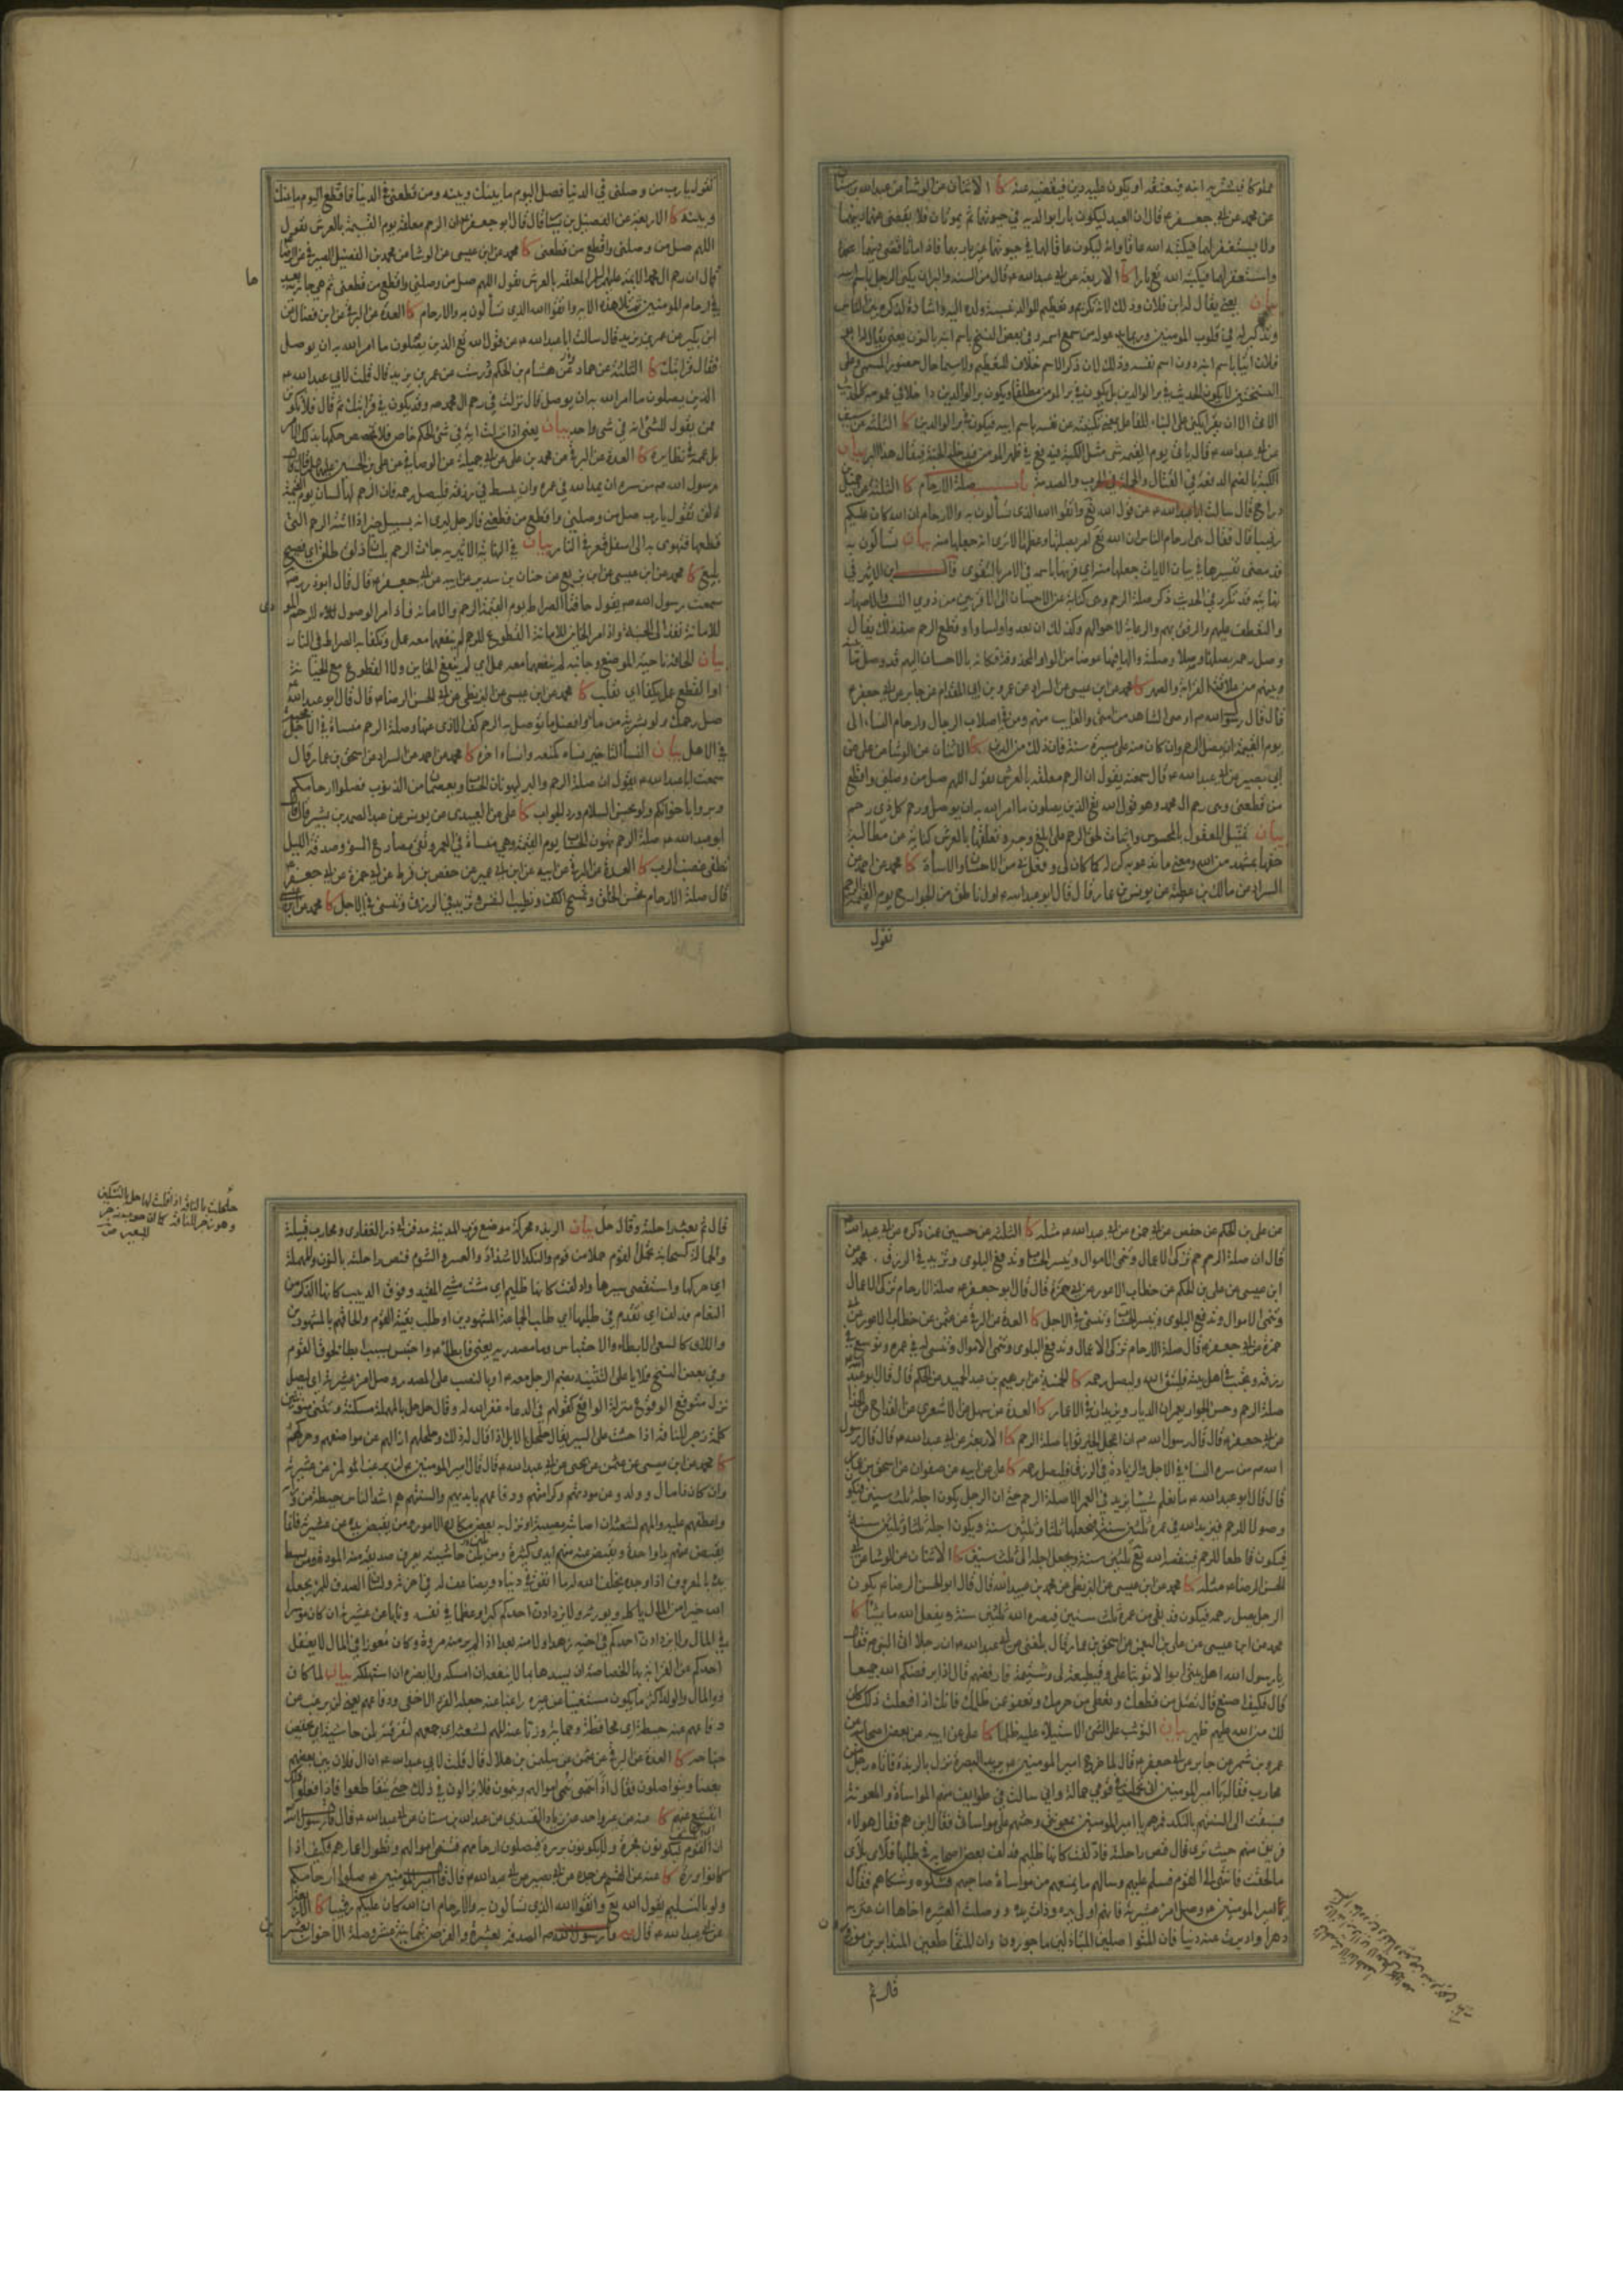 مملوكا فيشتريه ابنه فيعتقه او يكون عليه دين فيقضيه عنه كا الاثنان عن الوشا عن عبدالله بن سنان
عن محمد عن ابي جعفر ع قال ان العبد ليكون بارا بوالديه في حيوتهما ثم يموتان فلا يقضى عنهما دينهما
ولا يستغفر لهما فيكتبه الله عاقا وانه ليكون عاقا لهما في حيوتهما غير بار بهما فاذا ماتا قضى دينهما
واستغفر لهما فيكتبه الله تع بارا كا الاربعة عن ابي عبدالله ع قال من السنة والبر ان يكنى الرجل باسم ابنه
بيان يعني يقال له ابن فلان وذلك لانه تكريم وتعظيم للوالد بنسبة ولده اليه واشادة لذكره بين الناس
وتذكير له في قلوب المومنين
فلان اتيا باسم ابنه دون اسم نفسه وذلك لان ذكر الاسم خلاف التعظيم ولا سيما حال حضور المسمى وعلى
النسختين لا يكون الحديث في بر الوالدين بل يكون في بر المومن مطلقا ويكون بر الوالدين داخلا في عمومه
الا ان يقرا يكنى على البناء للفاعل بمعنى تكنيته عن نفسه باسم ابيه فيكون في بر الوالدين كا الثلثة عن سيف
عن ابي عبدالله ع قال ياتي يوم القيمة شي مثل الكبة فيدفع في ظهر المومن فيدخله الجنة فيقال هذا البر بيان
الكبة بالضم الدفعة في القتال والحملة في الحرب والصدمة باب صلة الارحام كا الثلثة عن جميل بن
دراج قال سالت ابا عبدالله ع عن قول الله تع واتقوا الله الذي تسألون به والارحام ان الله كان عليكم
رقيبا قال فقال هي ارحام الناس ان الله تع امر بصلتها وعظمها الا ترى انه جعلها منه بيان تسألون به
قد مضى تفسيرها في بيان الايات جعلها منه اي قرنها باسمه في الامر بالتقوى قال ابن الاثير في
نهايته قد تكرر في الحديث ذكر صلة الرحم وهي كناية عن الاحسان الى الاقربين من ذوي النسب والاصهار
والتعطف عليهم والرفق بهم والرعاية لاحوالهم وكذلك ان بعدوا واساوا وقطع الرحم ضد ذلك يقال
وصل رحمه يصلها وصلا وصلة والهاء فيها عوض من الواو المحذوفة فكانه بالاحسان اليهم قد وصل ما بينه
وبينهم من علاقة القرابة والصهر كا محمد عن ابن عيسى عن السراد عن عمرو بن ابي المقدام عن جابر عن ابي جعفر ع
قال قال رسول الله ص اوصي الشاهد من امتي والغايب منهم ومن في اصلاب الرجال وارحام النساء الى
يوم القيمة ان يصل الرحم وان كانت منه على مسيرة سنة فان ذلك من الدين كا الاثنان عن الوشا عن علي عن
ابي بصير عن ابي عبدالله ع قال سمعته يقول ان الرحم معلقة بالعرش تقول اللهم صل من وصلني واقطع
من قطعني وهي رحم ال محمد وهو قول الله تع الذين يصلون ما امر الله به ان يوصل ورحم كل ذي رحم
بيان تمثيل للمعقول بالمحسوس واثبات لحق الرحم على ابلغ وجه وتعلقها بالعرش كناية عن مطالبة
حقها بمشهد من الله ومعنى ما تدعو به كن له كما كان لي وافعل به ما فعل بي من الاحسان والاساءة كا محمد عن احمد عن
السراد عن مالك بن عطية عن يونس بن عمار قال قال ابو عبدالله ع اول ناطق من الجوارح يوم القيمة الرحم
تقول
تقول يا رب من وصلني في الدنيا فصل اليوم ما بينك وبينه ومن قطعني في الدنيا فاقطع اليوم ما بينك
وبينه كا الاربعة عن الفضيل بن يسار قال قال ابو جعفر ع ان الرحم معلقة يوم القيمة بالعرش تقول
اللهم صل من وصلني واقطع من قطعني كا محمد عن ابن عيسى عن الوشا عن محمد بن الفضيل الصيرفي عن الرضا
قال ان رحم ال محمد الائمة عليهم السلام لمعلقة بالعرش تقول اللهم صل من وصلني واقطع من قطعني ثم هي جارية بعد
ها
في ارحام المومنين ثم تلا هذه الاية واتقوا الله الذي تسألون به والارحام كا العدة عن البرقي عن ابن فضال عن
ابن بكير عن عمر بن يزيد قال سالت ابا عبدالله ع عن قول الله تع الذين يصلون ما امر الله به ان يوصل
فقال قرابتك كا الثلثة عن حماد بن عثمن وهشام بن الحكم ودرست عن عمر بن يزيد قال قلت لابي عبدالله ع
الذين يصلون ما امر الله به ان يوصل قال نزلت في رحم ال محمد ص وقد يكون في قرابتك ثم قال فلا تكونن
ممن يقول للشي انه في شي واحد بيان يعني اذا نزلت اية في شي لحكم خاص فلا تخصص حكمها بذلك الامر
بل عممه في نظايره كا العدة عن البرقي عن محمد بن علي عن ابي جميلة عن الوصافي عن علي بن الحسين عليهما السلام قال قال
رسول الله ص من سره ان يمد الله في عمره وان يبسط في رزقه فليصل رحمه فان الرحم لها لسان يوم القيمة
ذلق تقول يا رب صل من وصلني واقطع من قطعني فالرجل ليرى انه بسبيل خير اذا اتته الرحم التي
قطعها فتهوى به الى اسفل قعر في النار بيان في النهاية الاثيرية جاءت الرحم بلسان ذلق طلق اي فصيح
بليغ كا محمد عن ابن عيسى عن ابن بزيع عن حنان بن سدير عن ابيه عن ابي جعفر ع قال قال ابوذر رضي
سمعت رسول الله ص يقول حافتا الصراط يوم القيمة الرحم والامانة فاذا مر الوصول للرحم المودي
للامانة نفذ الى الجنة واذا مر الخاين للامانة القطوع للرحم لم ينفعهما معه عمل وتكفا به الصراط في النار
بيان الحافة ناحية الموضع وجانبه لم ينفعهما معه عمل اي لم ينفع الخاين ولا القطوع مع الخيانة
او القطع عمل تكفا اي تقلب كا محمد عن ابن عيسى عن البزنطي عن ابي الحسن الرضا ع قال قال ابو عبدالله
صل رحمك ولو بشربة من ماء وافضل ما توصل به الرحم كف الاذى عنها وصلة الرحم منساة في الاجل محببة
في الاهل بيان النسأ التاخير نساه كمنعه وانساه اخره كا محمد عن احمد عن السراد عن اسحق بن عمار قال
سمعت ابا عبدالله ع يقول ان صلة الرحم والبر ليهونان الحساب ويعصمان من الذنوب فصلوا ارحامكم
وبروا باخوانكم ولو بحسن السلام ورد الجواب كا علي عن العبيدي عن يونس عن عبد الصمد بن بشير قال قال
ابو عبدالله ع صلة الرحم تهون الحساب يوم القيمة وهي منساة في العمر وتقي مصارع السوء وصدقة الليل
تطفي غضب الرب كا العدة عن البرقي عن ابيه عن ابن ابي عمير عن حفص بن قرط عن ابي حمزة عن ابي جعفر
قال صلة الارحام تحسن الخلق وتسمح الكف وتطيب النفس وتزيد في الرزق وتنسي في الاجل كا محمد عن ابن عيسى
عن علي بن الحكم عن حفص عن ابي حمزة عن ابي عبدالله ع مثله كا الثلثة عن حسين عمن ذكره عن ابي عبدالله
قال ان صلة الرحم تزكي الاعمال وتنمي الاموال وتيسر الحساب وتدفع البلوى وتزيد في الرزق محمد عن
ابن عيسى عن علي بن الحكم عن خطاب الاعور عن ابي حمزة قال قال ابو جعفر ع صلة الارحام تزكي الاعمال
وتنمي الاموال وتدفع البلوى وتيسر الحساب وتنسي في الاجل كا العدة عن البرقي عن عثمن عن خطاب الاعور عن ابي
حمزة عن ابي جعفر ع قال صلة الارحام تزكي الاعمال وتدفع البلوى وتنمي الاموال وتنسي له في عمره وتوسع في
رزقه وتحبب في اهل بيته فليتق الله وليصل رحمه كا الخمسة عن ابرهيم بن عبد الحميد عن الحكم قال قال ابو عبد الله
صلة الرحم وحسن الجوار يعمران الديار ويزيدان في الاعمار كا العدة عن سهل عن الاشعري عن القداح
عن ابي جعفر ع قال قال رسول الله ص ان اعجل الخير ثوابا صلة الرحم كا الاربعة عن ابي عبدالله ع قال قال رسول
الله ص من سره النساء في الاجل والزيادة في الرزق فليصل رحمه كا علي عن ابيه عن صفوان عن اسحق بن عمار
قال قال ابو عبدالله ع ما نعلم شيئا يزيد في العمر الا صلة الرحم حتى ان الرجل يكون اجله ثلث سنين فيكون
وصولا للرحم فيزيد الله في عمره ثلثين سنة فيجعلها ثلثا وثلثين سنة ويكون اجله ثلثا وثلثين سنة
فيكون قاطعا للرحم فينقصه الله تع ثلثين سنة ويجعل اجله الى ثلث سنين كا الاثنان عن الوشا عن ابي
الحسن الرضا ع مثله كا محمد عن ابن عيسى عن البزنطي عن محمد بن عبيدالله قال قال ابو الحسن الرضا ع يكون
الرجل يصل رحمه فيكون قد بقي من عمره ثلث سنين فيصيره الله ثلثين سنة ويفعل الله ما يشاء كا
محمد عن ابن عيسى عن علي بن النعمن عن اسحق بن عمار قال بلغني عن ابي عبدالله ع ان رجلا اتى النبي ص فقال
يا رسول الله اهل بيتي ابوا الا توثبا علي وقطيعة لي وشتيمة فارفضهم قال اذا يرفضكم الله جميعا
قال فكيف اصنع قال تصل من قطعك وتعطي من حرمك وتعفو عمن ظلمك فانك اذا فعلت ذلك كان
لك من الله عليهم ظهير بيان التوثب على الشي الاستيلاء عليه ظلما كا علي عن ابيه عن بعض اصحابه عن
عمرو بن شمر عن جابر عن ابي جعفر ع قال لما خرج امير المومنين ع يريد البصرة نزل بالربذة فاتاه رجل من
محارب فقال يا امير المومنين اني تحملت في قومي حمالة واني سالت في طوايف منهم المواساة والمعونة
فسبقت الي السنتهم بالنكد فمرهم يا امير المومنين بمعونتي وحثهم على مواساتي فقال اين هم فقال هولاء
فريق منهم حيث ترى قال فنص راحلته فادلفت كانها ظليم فدلف بعض اصحابه في طلبها فلايا بلاي
ما لحقت فانتهى الى القوم فسلم عليهم وسالهم ما يمنعهم من مواساة صاحبهم فشكوه وشكاهم فقال
امير المومنين ع وصل امرء عشيرته فانهم اولى ببره وذات يده ووصلت العشيرة اخاها ان عثر به
دهر وادبرت عنه دنيا فان المتواصلين المتباذلين ماجورون وان المتقاطعين المتدابرين موزورون
قال ثم
قال ثم بعث راحلته وقال حل بيان الربذه محركة موضع قرب المدينة مدفن ابي ذر الغفاري ومحارب قبيلة
والحمالة كسحابة تحمل لقوم حملا من قوم والنكد الاشتداد والعسر والشوم فنص راحلته بالنون والمهملة
اي حركها واستقصى سيرها وادلفت كانها ظليم اي مشت مشي المقيد وفوق الدبيب كانها الذكر من
النعام فدلف اي تقدم في طلبها اي طلب الجماعة المشهودين او طلب بقية القوم والحاقهم بالمشهودين
واللاي كالسعي الابطاء والاحتباس وما مصدرية يعني فابطا ع واحتبس بسبب ابطا لحوق القوم
وفي بعض النسخ فلايا على التثنية بضم الرجل معه ع او بالنصب على المصدر وصل امرء عشيرته اي ليصل
نزل متوقع الوقوع منزلة الواقع كقولهم في الدعاء غفر الله له وقال حل حل بالمهملة مسكنة وتثنى منونتين
كلمة زجر للناقة اذا حثت على السير يقال حلحل بالابل اذا قال لها ذلك وحلحلهم ازالهم عن مواضعهم وحركهم
كا محمد عن ابن عيسى عن عثمن عن يحيى عن ابي عبدالله ع قال قال امير المومنين ع لن يرغب المرء عن عشيرته
وان كان ذا مال وولد وعن مودتهم وكرامتهم ودفاعهم بايديهم والسنتهم هم اشد الناس حيطة من ورائه
واعطفهم عليه والمهم لشعثه ان اصابته مصيبة او نزل به بعض مكاره الامور ومن يقبض يده عن عشيرته فانما
يقبض عنهم يدا واحدة ويقبض عنه منهم ايدي كثيرة ومن يلن حاشيته يعرف صديقه منه المودة ومن بسط
يده بالمعروف اذا وجده يخلف الله له ما انفق في دنياه ويضاعف له في اخرته ولسان الصدق للمرء يجعله
الله خيرا من المال ياكله ويورثه لا يزدادن احدكم كبرا وعظما في نفسه ونايا عن عشيرته ان كان موسرا
في المال ولا يزدادن احدكم في اخيه زهدا ولا منه بعدا اذا لم ير منه مروة وكان معوزا في المال لا يغفل
احدكم عن القرابة بها الخصاصة ان يسدها بما لا ينفعه ان امسكه ولا يضره ان استهلكه بيان لما كان
ذو المال والولد اكثر ما يكون مستغنيا عن غيره راغبا عنه جعله الفرد الاخفى ودفاعهم يعني لن يرغب عن
دفاعهم عنه حيطة اي محافظة وحماية وذبا عنه المهم لشعثه اي جمعهم لتفرقته يلن حاشيته اي يخفض
جناحه كا العدة عن البرقي عن عثمن عن سليمن بن هلال قال قلت لابي عبدالله ع ان ال فلان يبر بعضهم
بعضا ويتواصلون فقال اذا تنمي اموالهم وينمون فلا يزالون في ذلك حتى يتقاطعوا فاذا فعلوا ذلك
انقشع عنهم كا عنه عن غير واحد عن زياد القندي عن عبدالله بن سنان عن ابي عبدالله ع قال قال رسول الله
ان القوم ليكونون فجرة ولا يكونون بررة فيصلون ارحامهم فتنمى اموالهم وتطول اعمارهم فكيف اذا
كانوا بررة كا عنه عن القسم عن جده عن ابي بصير عن ابي عبدالله ع قال قال امير المومنين ع صلوا ارحامكم
ولو بالتسليم يقول الله تع واتقوا الله الذي تسألون به والارحام ان الله كان عليكم رقيبا كا
عن ابي عبدالله ع قال قال رسول الله ص الصدقة بعشرة والقرض بثمانية عشر وصلة الاخوان بعشرين
حلحلت بالناقة اذا قلت لها حل بالتسكين
وهو زجر للناقة
للبعير ص